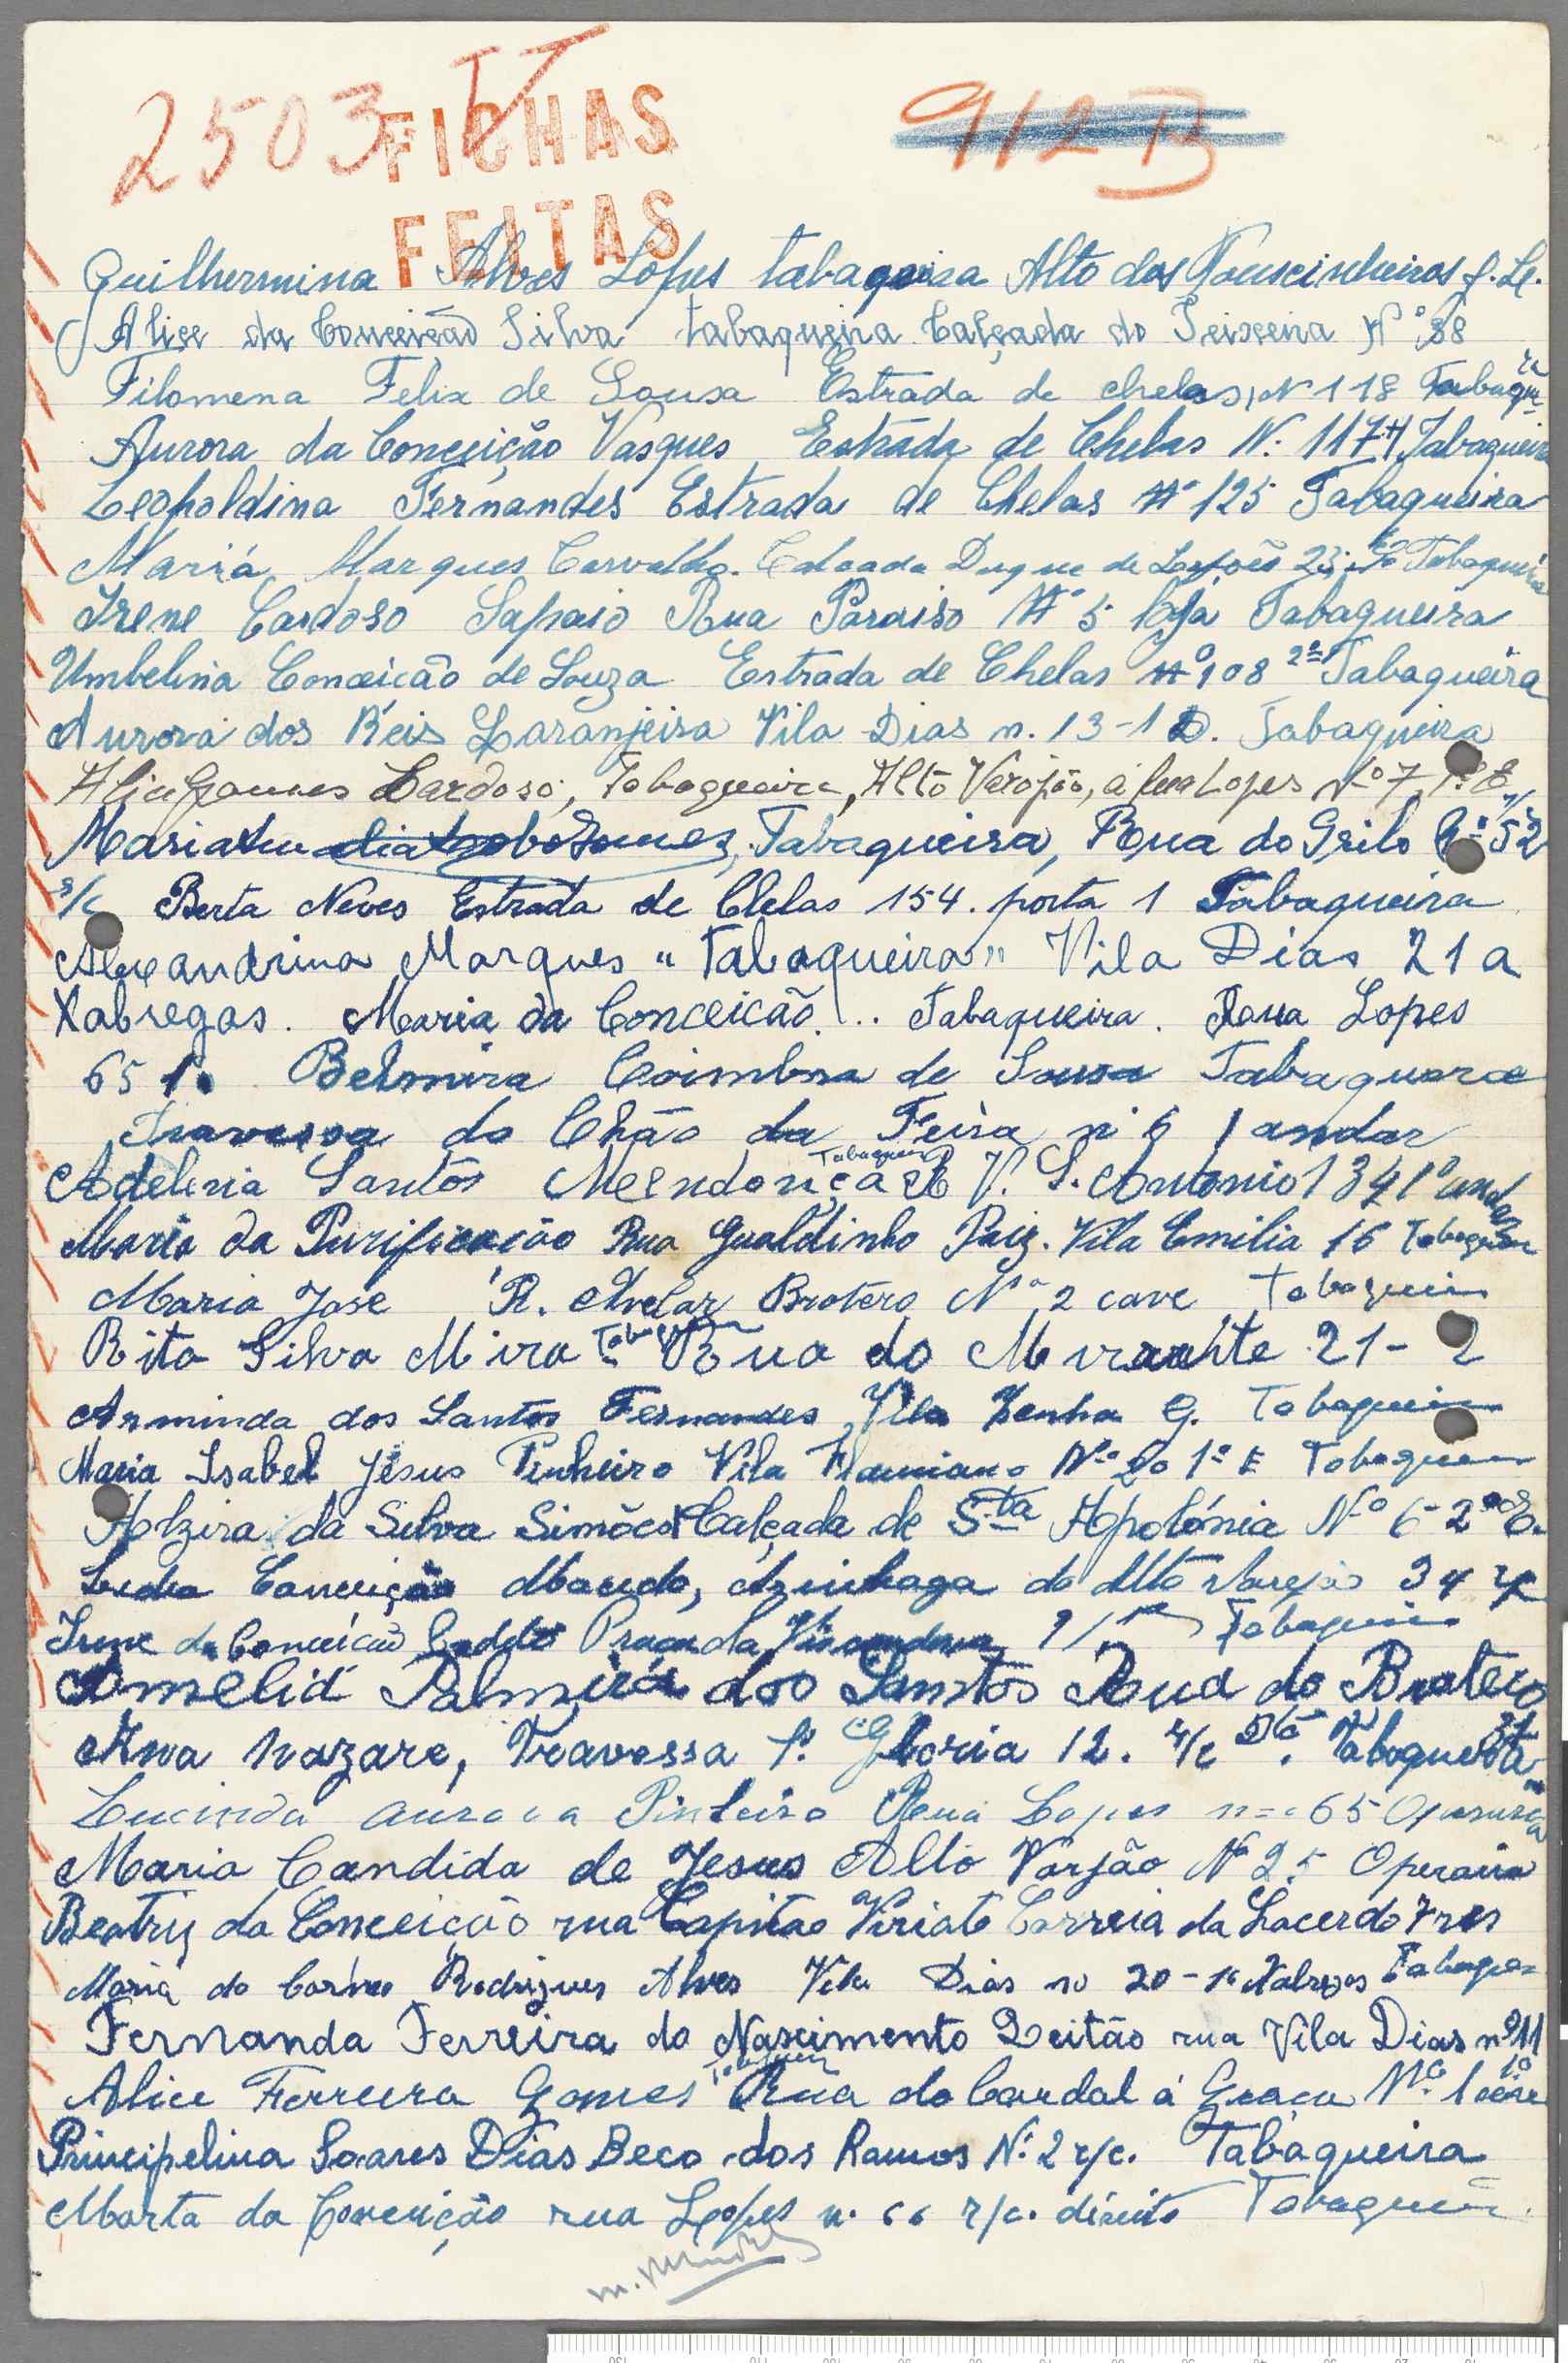 2503 FICHAS 912 B
FEITAS
Guilhermina Alves Lopes tabaqueira Alto dos Toucinheiros J. L.
Alice da Conceição Silva tabaqueira Calçada do Teixeira Nº 38
Filomena Felix de Sousa Estrada de chelas, N 118 Tabaqueira
Aurora da Conceição Vasques Estrada de Chelas N. 117 H Tabaqueira
Leopoldina Fernandes Estrada de Chelas Nº 125 Tabaqueira
Mariá Marques Carvalho. Calcada Duque de Lafões 23 Tabaqueira
Irene Cardoso Sapaio Rua Paraiso Nº 5 loja Tabaqueira
Umbelina Conceicão de Souza Estrada de Chelas Nº 108 2º Tabaqueira
Aurora dos Reis Laranjeira Vila Dias n. 13-1 D. Tabaqueira
Alice Gomes Cardoso, Tabaqueira, Alto Varejão, á Rua Lopes Nº 7, 1º E
Maria Tabaqueira, Rua do Grilo Nº 52
r/c Berta Neves Estrada de Chelas 154. porta 1 Tabaqueira
Alexandrina Marques "Tabaqueira" Vila Dias 21 a
Xabregas. Maria da Conceicão... Tabaqueira. Rua Lopes
65 1. Belmira Coimbra de Sousa Tabaqueira
Travessa do Chão da Feira nº 6 1 andar
Adelina Santos Meendonça Tabaqueira R V. S. Antonio 134 1º andar
Maria da Purificacão Rua Gualdinho Paiz. Vila Emilia 16 Tabaqueira
Maria Jose R. Avelar Brotero Nº 2 cave Tabaqueira
Rita Silva Mira Tabaqueira Rua do Mirante 21-2
Arminda dos Santos Fernandes Vila Zenha G. Tabaqueira
Maria Isabel Jesus Pinheiro Vila Flamiano Nº 20 1º E Tabaqueira
Alzira da Silva Simões Calçada de Sta Apolónia Nº 6-2º E.
Conceição Macedo, Azinhaga do Alto Varejão 34
Irene da Conceicão Praça da 9 Tabaqueira
Amelid Palmira dos Santos Rua do Brotero
Ana Nazare, Travessa S. Gloria 12. r/c Dto. Tabaqueira
Lucinda aurora Pinheiro Rua Lopes nº 65 Operaria
Maria Candida de Jesus Alto Varjão Nº 25 Operaria
Beatriz da Conceição rua Capitao Viriato Correia da Lacerda 7 res
Maria do Carmo Rodrigues Alves Vila Dias nº 20-1º Xabregas Tabaqueira
Fernanda Ferreira do Nascimento Leitão rua Vila Dias nº 11
Alice Ferreira Gomes Tabaqueira Rua do Cardal á Graça Nº 1 1º
Principelina Soares Dias Beco dos Ramos Nº 2 r/c. Tabaqueira
Marta da Conceição rua Lopes n. 66 r/c. direito Tabaqueira